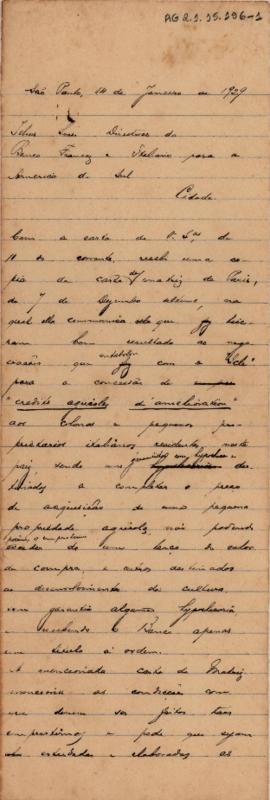 AG 2.1.15.196-1
São Paulo, 14 de Janeiro de 1929
Illmos Snrs. Directores do
Banco Francez e Italiano para a
America do Sul
Cidade.
Com a carta de V. Sas. de
11 do corrente, recebi uma co-
pia da carta da matriz de Paris,
de 7 de Dezembro ultimo, na
qual ella communica que
bom resultado as nego-
ciações que com o
para a concessão de
"credito agricolo d'amelioration"
aos colonos e pequenos pro-
prietarios italianos residentes neste
paiz, sendo uns des-
tinados a completar o preço
de acquisição de uma pequena
propriedade agricola, não podendo
porém, o emprestimo
exceder de um terço do valor
da compra, e outros destinados
ao desenvolvimento da cultura,
sem garantia alguma hypothecaria
e recebendo o Banco apenas
um titulo á ordem.
A mencionada carta da Matriz
as condições com
que devem ser feitos taes
emprestimos e pede que sejam
estudadas e elaboradas as